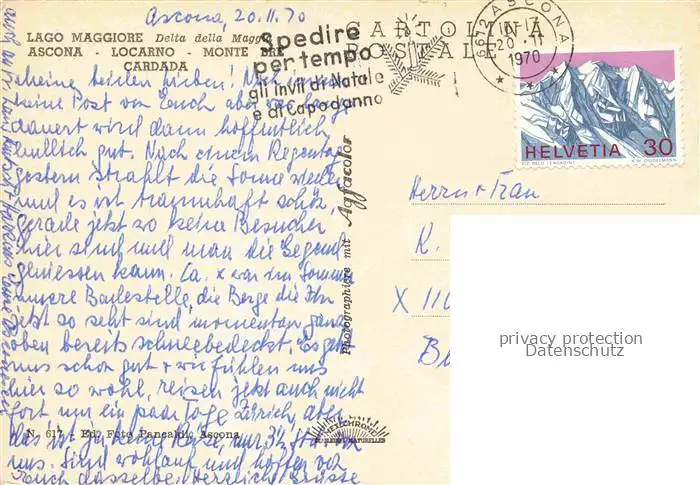 Ascona, 20.11.70
LAGO MAGGIORE Delta della Maggia
ASCONA - LOCARNO - MONTE BRÈ
CARDADA
CARTOLINA
POSTALE
Spedire
per tempo
gli invii di Natale
e di Capodanno
6612 ASCONA
20.11
1970
HELVETIA 30
PIZ PALÜ (ENGADIN)
Meine beiden Lieben! Noch immer
keine Post von Euch aber was lange
dauert wird dann hoffentlich
endlich gut. Nach einem Regentag
gestern strahlt die Sonne wieder
und es ist traumhaft schön,
gerade jetzt wo keine Besucher
hier sind und man die Gegend
geniessen kann. Ca. x war im Sommer
unsere Badestelle, die Berge die Ihr
jetzt so seht sind momentan ganz
oben bereits schneebedeckt. Es geht
uns schon gut + wir fühlen uns
hier so wohl, reisen jetzt auch nicht
fort nur ein paar Tage Zürich, aber
das ist ja keine Reise, nur 3½ Std. von
uns. Sind wohlauf und hoffen von
Euch dasselbe, herzlichst Grüsse
Photographiere mit Agfacolor
Herrn + Frau
K.
X 110
B
privacy protection
Datenschutz
N. 617 - Ed. Foto Pancaldi - Ascona
MEXICHROM
COULEURS NATURELLES